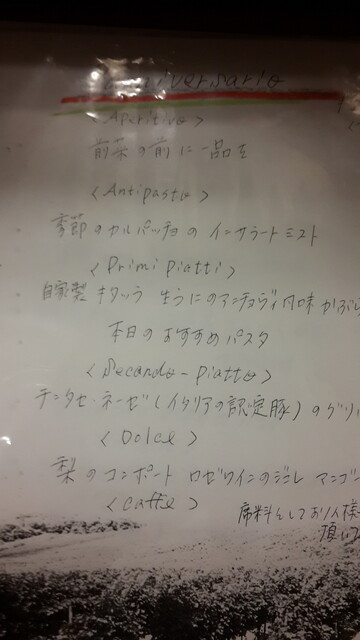 anniversario
<Aperitivo>
前菜の前に一品を
<Antipasto>
季節のカルパッチョの インサラートミスト
<Primi piatti>
自家製 キタッラ 生うにのアンチョヴィ風味 かぶら
本日のおすすめパスタ
<Secondo-piatto>
チンタセ・ネーゼ(イタリアの認定豚)のグリ
<Dolce>
梨のコンポート ロゼワインのジュレ マンゴー
<Caffe>
席料としてお1人様
頂い